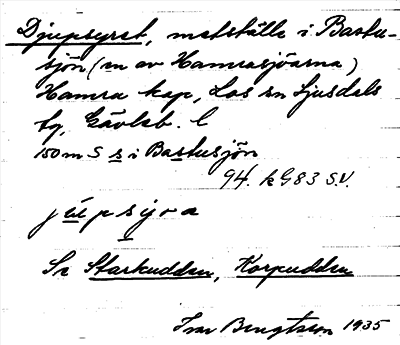 Djupsyret, metställe i Bastu-
sjön (en av Hamrasjöarna)
Hamra kap, Los sn Ljusdals
tg, Gävleb. l
150 m S s i Bastusjön
94. k G 83 S.V.
jupsyra
Se Starkudden, Korpudden
Ivar Bengtsson 1935